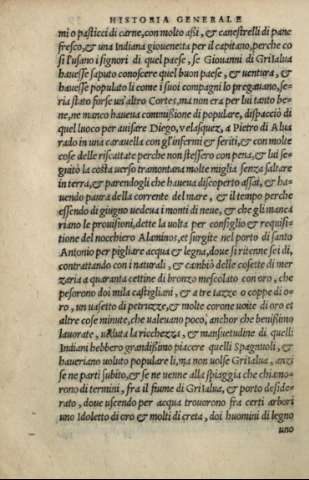 HISTORIA GENERALE
mi o pasticci di carne, con molto aßi, & canestrelli di pane
fresco, & una Indiana giouenetta per il capitano, perche co
si l'usano i signori di quel paese, se Giouanni di Grisalua
hauesse saputo conoscere quel buon paese, & uentura, &
hauesse populato li come i suoi compagni lo pregauano, se-
ria stato forse un'altro Cortes, ma non era per lui tanto be-
ne, ne manco haueua commißione di populare, dispacciò di
quel luoco per auisare Diego, uelasquez, a Pietro di Alua
rado in una carauella con gl'infermi & feriti, & con molte
cose delle riscattate perche non stessero con pena, & lui se-
guitò la costa uerso tramontana molte miglia senza saltare
in terra, & parendogli che haueua discoperto assai, & ha-
uendo paura della corrente del mare, & il tempo perche
essendo di giugno uedeua i monti di neue, & che gli manca
riano le prouisioni, dette la uolta per consiglio & requisi-
tione del nocchiero Alaminos, et surgite nel porto di santo
Antonio per pigliare acqua & legna, doue si ritenne sei dì,
contrattando con i naturali, & cambiò delle cosette di mer
zaria a quaranta cettine di bronzo mescolato con oro, che
pesorono doi mila castigliani, & a tre tazze o coppe di o-
ro, un uasetto di petruzze, & molte corone uoite di oro et
altre cose minute, che ualeuano poco, anchor che benißimo
lauorate, uista la ricchezza, & mansuetudine di quelli
Indiani hebbero grandißimo piacere quelli Spagnuoli, &
haueriano uoluto populare li, ma non uolse Grisalua, anzi
se ne partì subito, & se ne uenne alla spiaggia che chiamo-
rono di termini, fra il fiume di Grisalua, & porto deside-
rato, doue uscendo per acqua trouorono fra certi arbori
uno Idoletto di oro & molti di creta, doi huomini di legno
uno